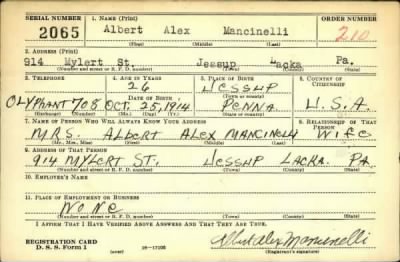 SERIAL NUMBER 1. NAME (Print) ORDER NUMBER
2065 Albert Alex Mancinelli 210
(First) (Middle) (Last)
2. ADDRESS (Print)
914 Mylert St. Jessup Lacka Pa.
(Number and street or R. F. D. number) (Town) (County) (State)
3. TELEPHONE 4. AGE IN YEARS 5. PLACE OF BIRTH 6. COUNTRY OF CITIZENSHIP
26 JESSUP
OLYPHANT 708 DATE OF BIRTH (Town or county)
OCT. 25, 1914 PENNA U.S.A.
(Exchange) (Number) (Mo.) (Day) (Yr.) (State or country)
7. NAME OF PERSON WHO WILL ALWAYS KNOW YOUR ADDRESS 8. RELATIONSHIP OF THAT PERSON
MRS. ALBERT ALEX MANCINELLI WIFE
(Mr., Mrs., Miss) (First) (Middle) (Last)
9. ADDRESS OF THAT PERSON
914 MYLERT ST. JESSUP LACKA. PA
(Number and street or R. F. D. number) (Town) (County) (State)
10. EMPLOYER'S NAME
11. PLACE OF EMPLOYMENT OR BUSINESS
NONE
(Number and street or R. F. D. number) (Town) (County) (State)
I AFFIRM THAT I HAVE VERIFIED ABOVE ANSWERS AND THAT THEY ARE TRUE.
REGISTRATION CARD Albert Alex Mancinelli
D. S. S. Form 1 (over) 16—17105 (Registrant's signature)